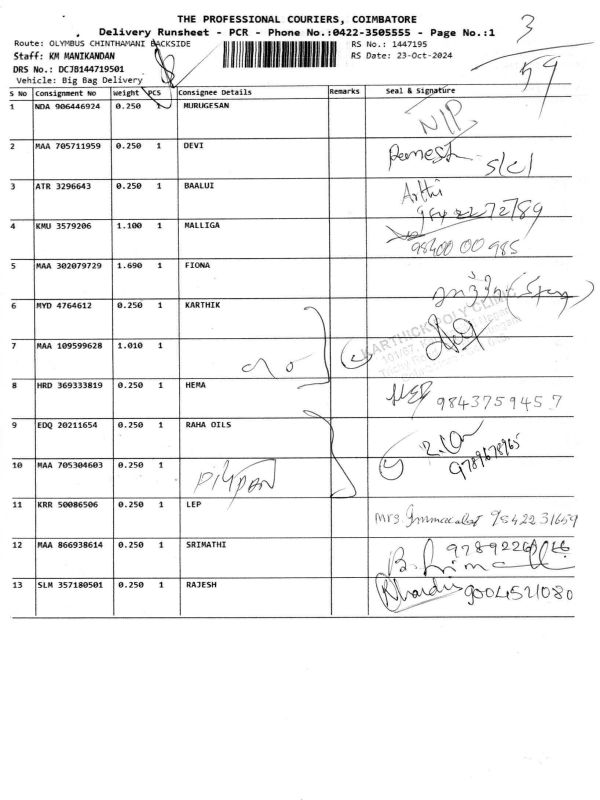 THE PROFESSIONAL COURIERS, COIMBATORE
Delivery Runsheet - PCR - Phone No.:0422-3505555 - Page No.:1
3
59
Route: OLYMBUS CHINTHAMANI BACKSIDE
RS No.: 1447195
Staff: KM MANIKANDAN
RS Date: 23-Oct-2024
DRS No.: DCJB144719501
Vehicle: Big Bag Delivery
S No Consignment No Weight PCS Consignee Details Remarks Seal & Signature
1 NDA 906446924 0.250 1 MURUGESAN N/P
2 MAA 705711959 0.250 1 DEVI Ramesh s/c/
3 ATR 3296643 0.250 1 BAALUI Arthi
4 KMU 3579206 1.100 1 MALLIGA 98400 00 985
5 MAA 302079729 1.690 1 FIONA
6 MYD 4764612 0.250 1 KARTHIK
KARTHICK POLY CLINIC
7 MAA 109599628 1.010 1
8 HRD 369333819 0.250 1 HEMA 9843759457
9 EDQ 20211654 0.250 1 RAHA OILS
9789678965
10 MAA 705304603 0.250 1
11 KRR 50086506 0.250 1 LEP Mrs. 9842231659
12 MAA 866938614 0.250 1 SRIMATHI
13 SLM 357180501 0.250 1 RAJESH 9004521080